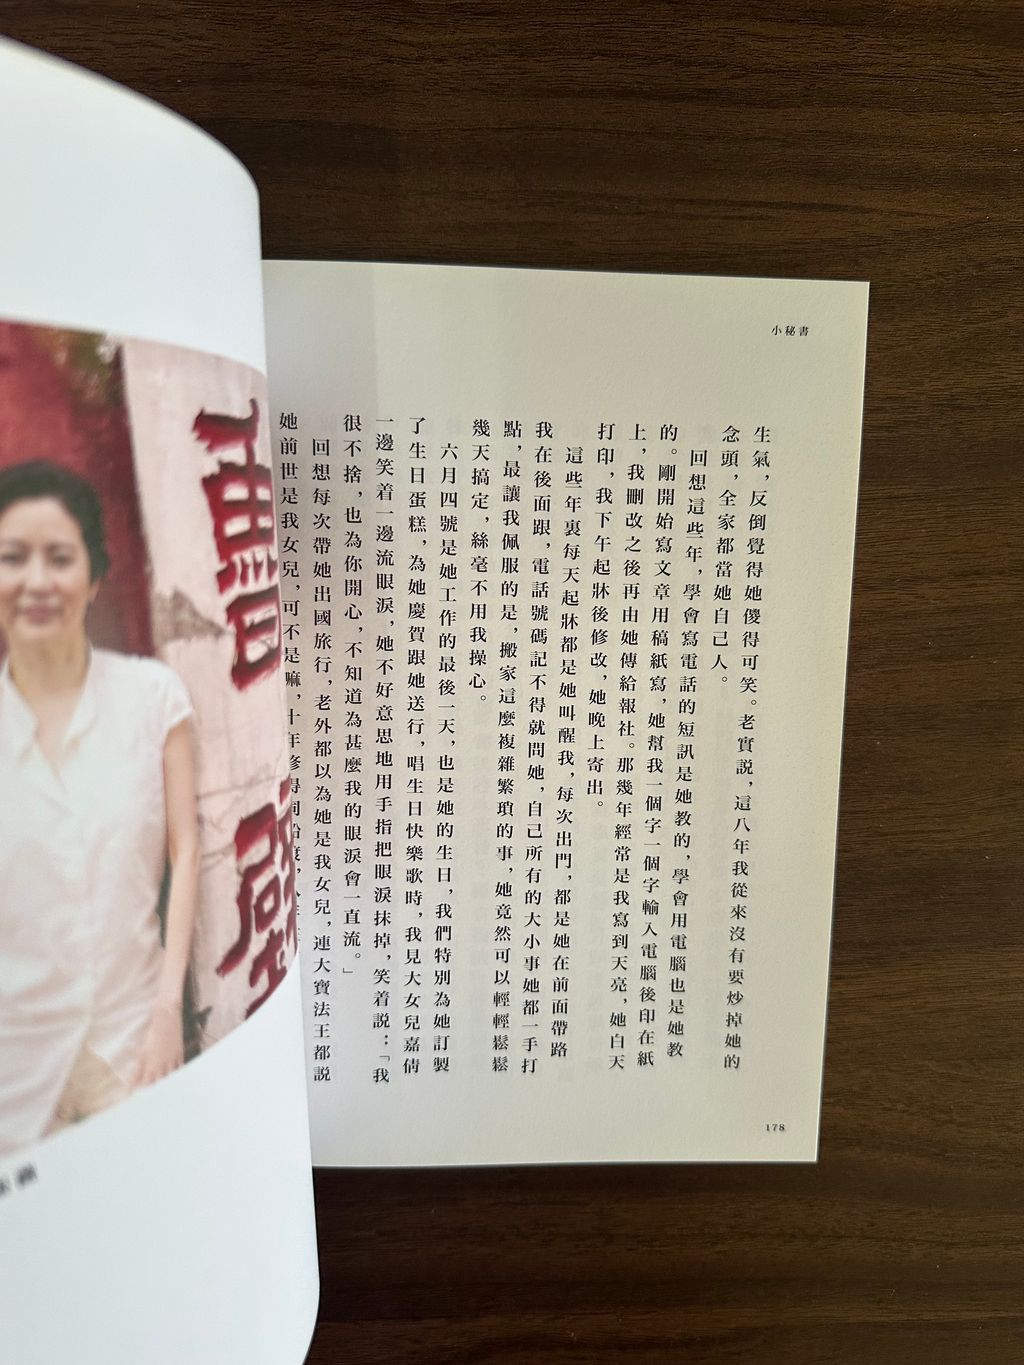 小秘書
生氣，反倒覺得她傻得可笑。老實説，這八年我從來沒有要炒掉她的
念頭，全家都當她自己人。
回想這些年，學會寫電話的短訊是她教的，學會用電腦也是她教
的。剛開始寫文章用稿紙寫，她幫我一個字一個字輸入電腦後印在紙
上，我刪改之後再由她傳給報社。那幾年經常是我寫到天亮，她白天
打印，我下午起牀後修改，她晚上寄出。
這些年裏每天起牀都是她叫醒我，每次出門，都是她在前面帶路
我在後面跟，電話號碼記不得就問她，自己所有的大小事她都一手打
點，最讓我佩服的是，搬家這麼複雜繁瑣的事，她竟然可以輕輕鬆鬆
幾天搞定，絲毫不用我操心。
六月四號是她工作的最後一天，也是她的生日，我們特別為她訂製
了生日蛋糕，為她慶賀跟她送行，唱生日快樂歌時，我見大女兒嘉倩
一邊笑着一邊流眼淚，她不好意思地用手指把眼淚抹掉，笑着説：「我
很不捨，也為你開心，不知道為甚麼我的眼淚會一直流。」
回想每次帶她出國旅行，老外都以為她是我女兒，連大寶法王都説
她前世是我女兒，可不是嘛，十年修得同船渡，
178